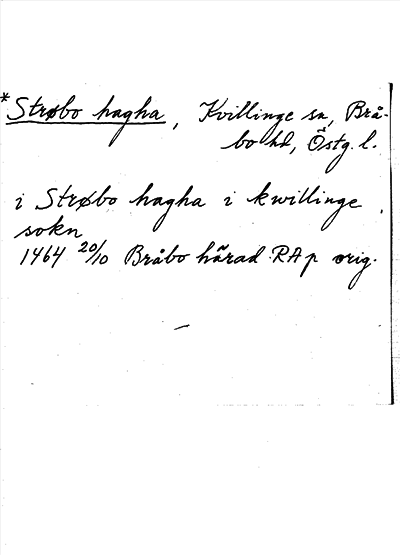 *Strøbo hagha, Kvillinge sn, Brå-
bo hd, Östg. l.
i Strøbo hagha i kwillinge
sokn
1464 20/10 Bråbo härad RAp orig.